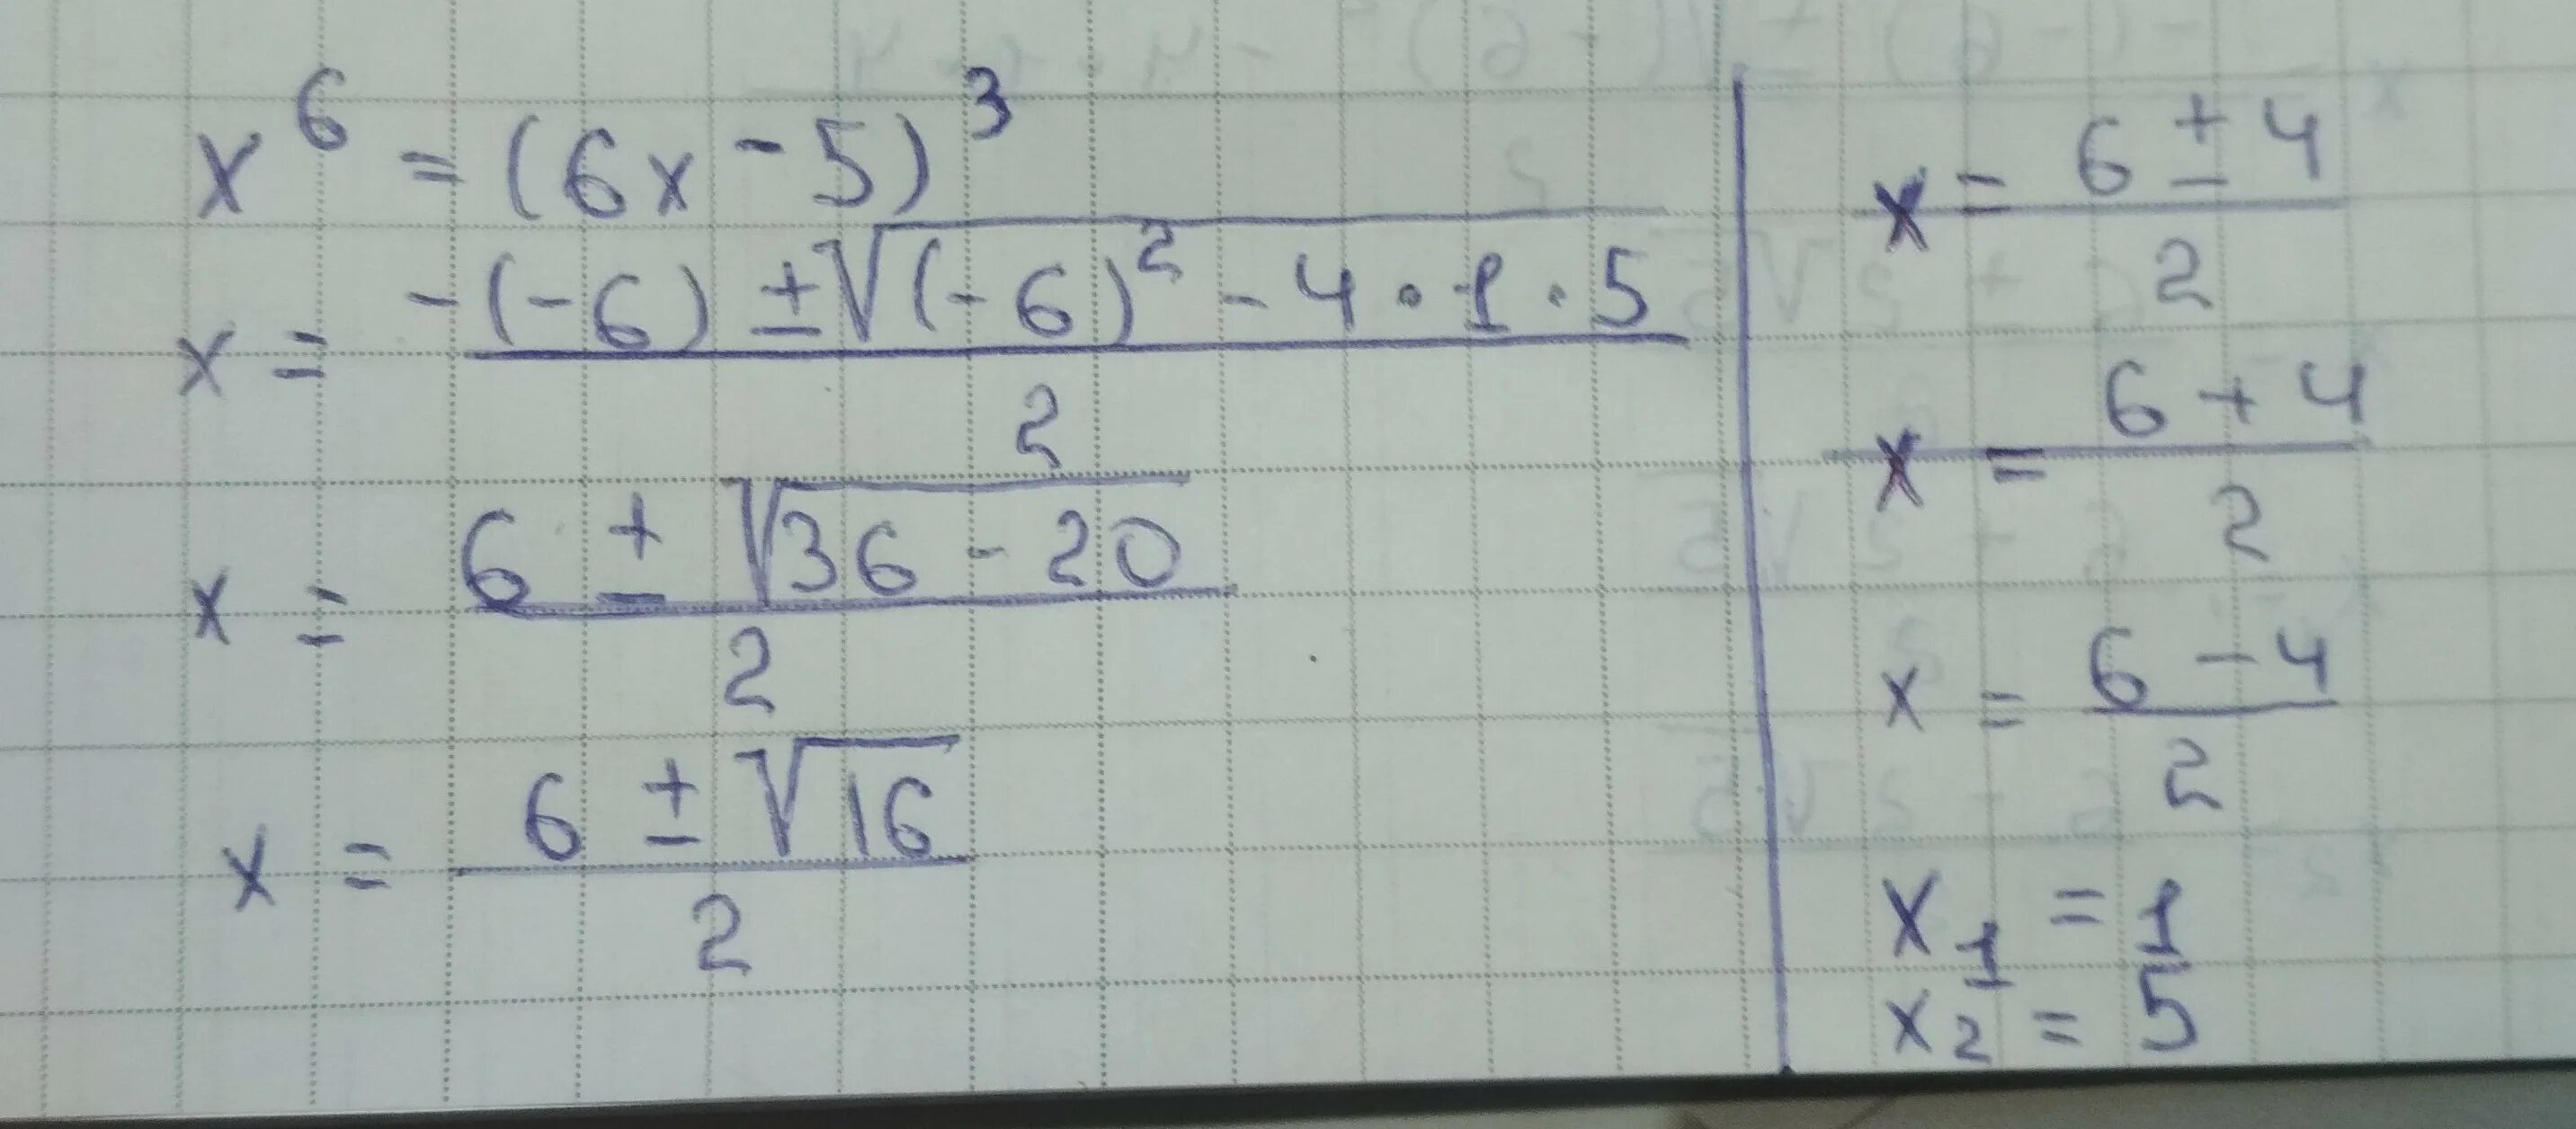 x⁶ = (6x - 5)³
x = (-(-6) ± √((-6)² - 4 · 1 · 5)) / 2
x = (6 ± √(36 - 20)) / 2
x = (6 ± √16) / 2
x = (6 ± 4) / 2
x = (6 + 4) / 2
x = (6 - 4) / 2
x₁ = 1
x₂ = 5